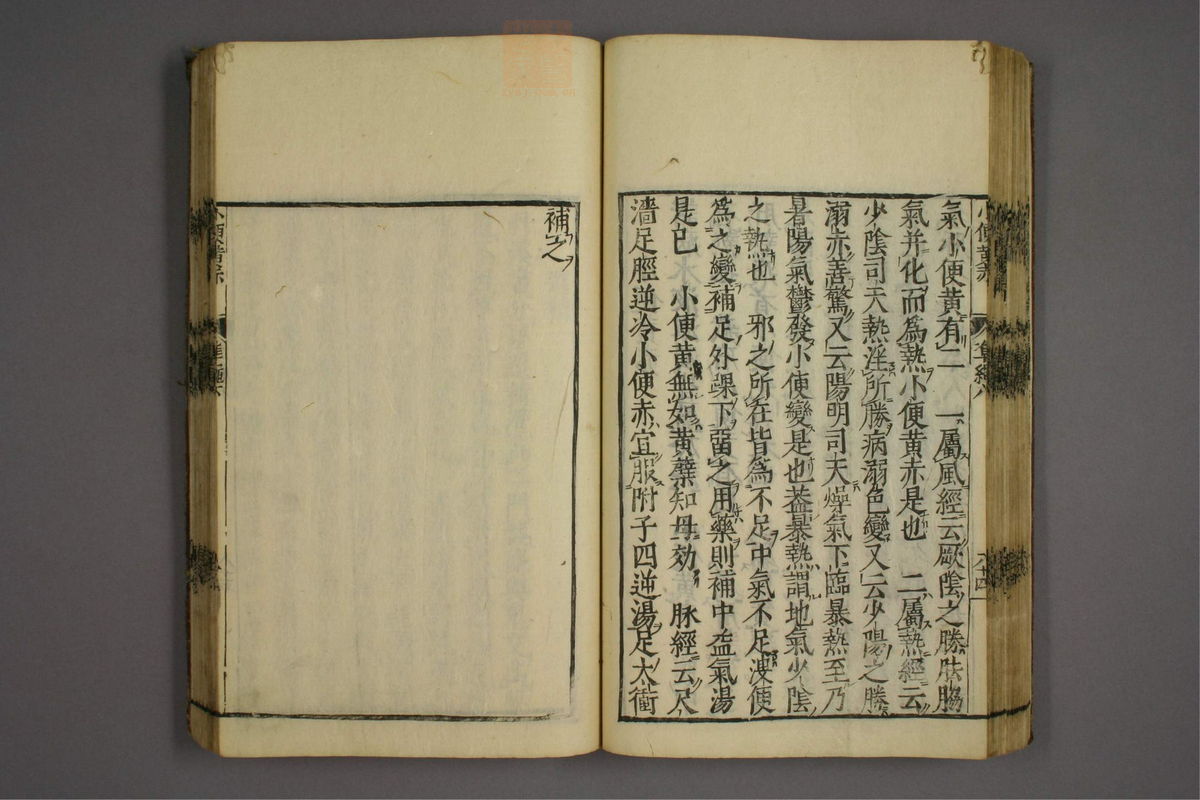 氣小便黃有二　一屬風經云厥陰之勝胠脇
氣并化而爲熱小便黃赤是也　二屬熱經云
少陰司天熱淫所勝病溺色變又云少陽之勝
溺赤善驚又云陽明司天燥氣下臨暴熱至乃
暑陽氣鬱發小便變是也葢暴熱謂地氣少陰
之熱也　邪之所在皆爲不足中氣不足溲便
爲之變補足外踝下留之用藥則補中益氣湯
是已　小便黃無如黃蘗知母効　脉經云尺
濇足脛逆冷小便赤宜服附子四逆湯足太衝
補之